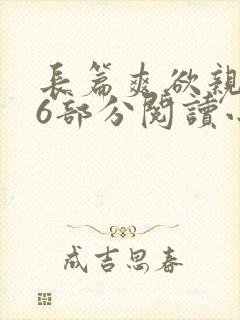 長篇爽欲親
6部分閱讀
成吉思春